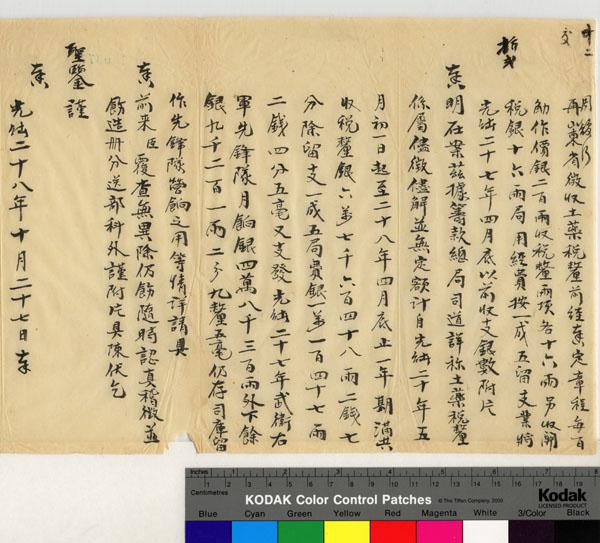 再東省徵收土藥稅釐前經奏定章程每百
助作價銀二百兩收稅釐兩項各十六兩另收關
稅銀十六兩局用經費按一成五留支業將
光緒二十七年四月底以前收支銀數附片
奏明在案茲據籌款總局司道詳稱土藥稅釐
係屬儘徵儘解並無定額計自光緒二十年五
月初一日起至二十八年四月底止一年期滿共
收稅釐銀六萬七千六百四十八兩二錢七
分除留支一成五局費銀一萬一百四十七兩
二錢四分五毫又支發光緒二十七年武衛右
軍先鋒隊月餉銀四萬八千三百兩外下餘
銀九千二百一兩二分九釐五毫仍存司庫留
作先鋒隊營餉之用等情詳請具
奏前來臣覆查無異除仍飭隨時認真稽徵並
飭造冊分送部科外謹附片具陳伏乞
聖鑒謹
奏
光緒二十八年十月二十七日奉
Inches
Centimetres
KODAK Color Control Patches
© The Tiffen Company, 2000
Kodak
LICENSED PRODUCT
Blue Cyan Green Yellow Red Magenta White 3/Color Black